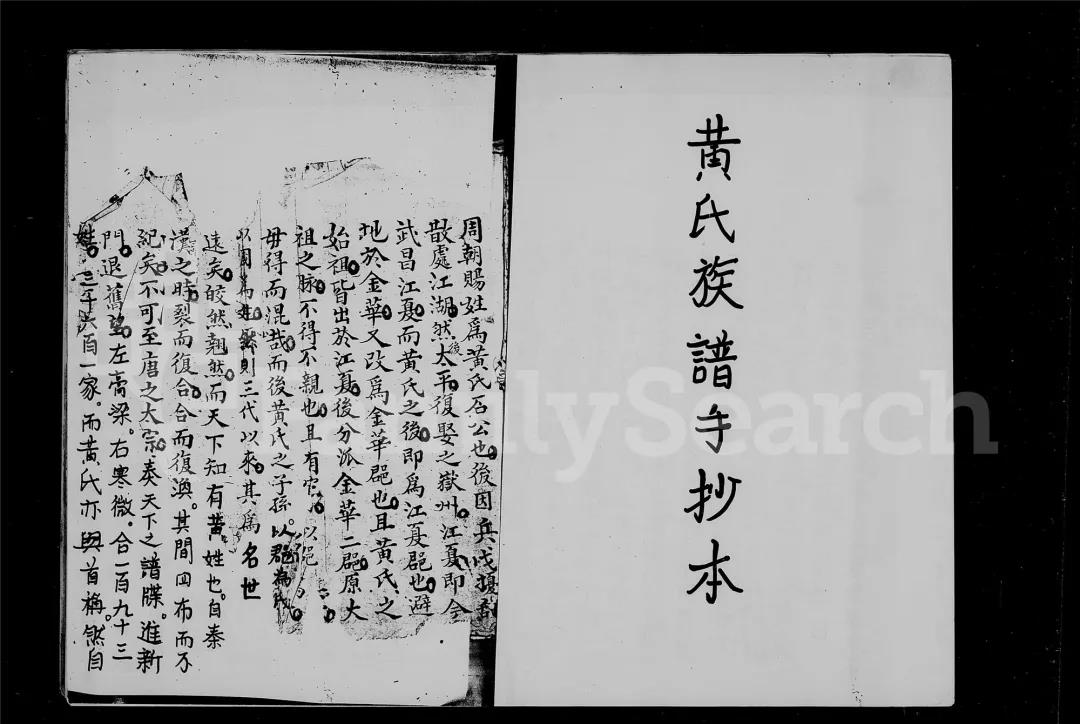 黃氏族譜手抄本
周朝賜姓為黃氏石公也後因兵戊擾
散處江湖然後太平復娶之嶽州江夏即今
武昌江夏而黃氏之後即為江夏郡也避
地於金華又改為金華郡也且黃氏之
始祖皆出於江夏後分派金華二郡原大
祖之脉不得不親也且有官以
毋得而混哉而後黃氏之子孫以郡為氏
以國為姓然則三代以來其為名世
遠矣皎然翹然而天下知有黃姓也自秦
漢之時裂而復合合而復渙其間四布而不
紀矣不可至唐之太宗奏天下之譜牒進新
門退舊望左膏梁右寒微合一百九十三
姓三千六百一家而黃氏亦與首稱然自
FamilySearch